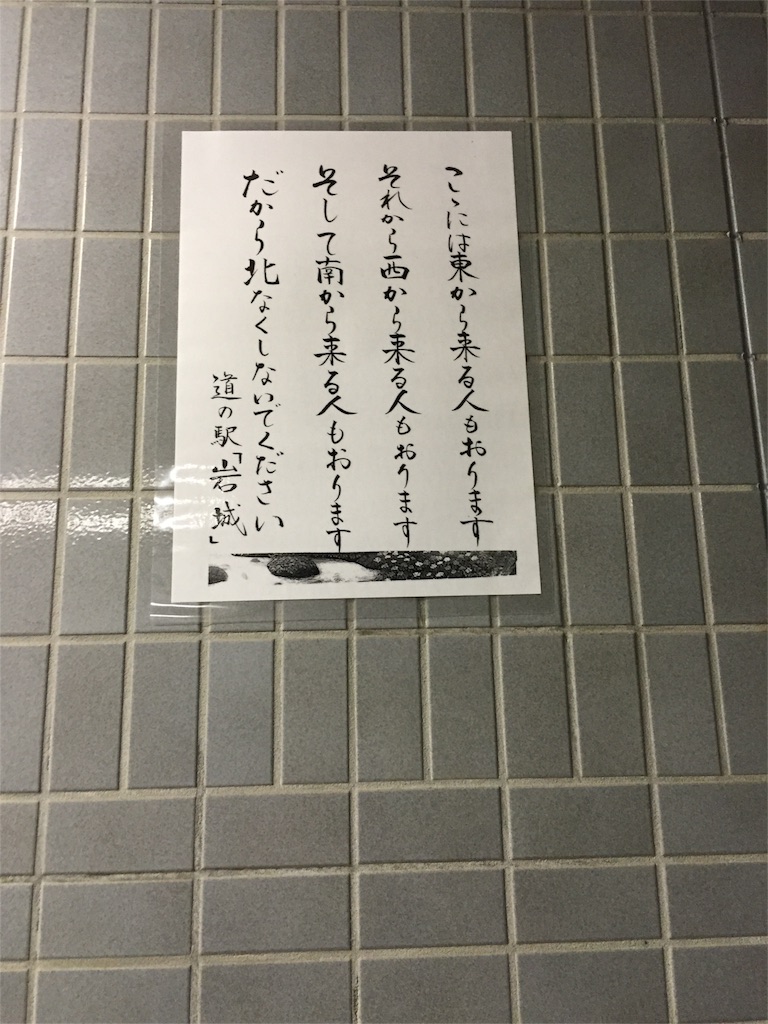 こゝには東から来る人もおります
それから西から来る人もおります
そして南から来る人もおります
だから北なくしないでください
道の駅「岩城」